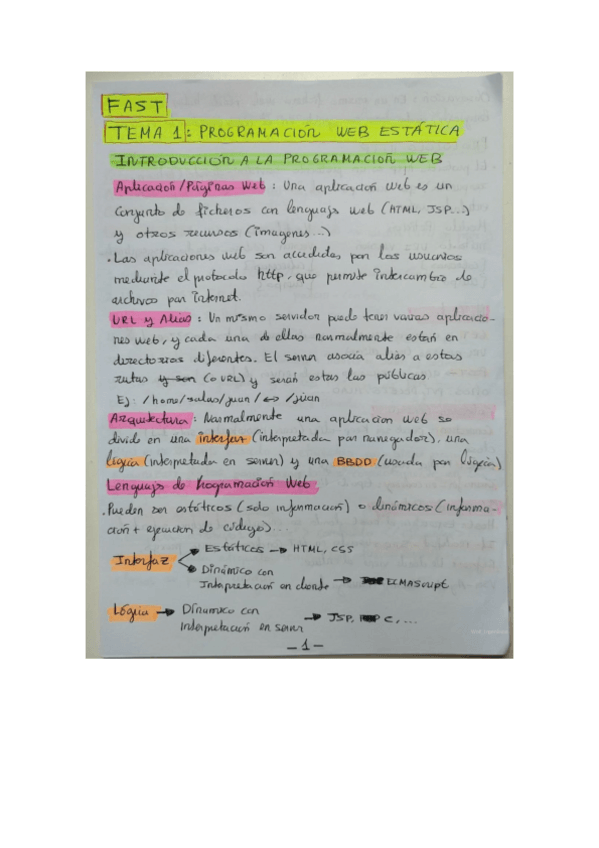 FAST
TEMA 1: PROGRAMACIÓN WEB ESTÁTICA
INTRODUCCIÓN A LA PROGRAMACIÓN WEB
Aplicación/Páginas Web: Una aplicación web es un
conjunto de ficheros con lenguajs web (HTML, JSP...)
y otros recursos (imagenes...)
· Las aplicaciones web son accedidas por los usuarios
mediante el protocolo http, que permite intercambio de
archivos por internet.
URL y Alias: Un mismo servidor puede tener varias aplicacio-
nes web, y cada una de ellas normalmente están en
directorios diferentes. El server asocia alias a estas
rutas y son (o URL) y serán estas las públicas
Ej: /home/salas/juan/ ↔ /juan
Arquitectura: Normalmente una aplicación web se
divide en una interfaz (interpretada por navegador), una
lógica (interpretada en server) y una BBDD (usada por lógica)
Lenguajs de Programación Web
· Pueden ser estáticos (solo información) o dinámicos (informa-
ción + ejecución de código)...
Interfaz → Estáticos → HTML, CSS
→ Dinámico con
Interpretación en cliente → ECMAScript
Lógica → Dinámico con
interpretación en server → JSP, C, ...
- 1 -